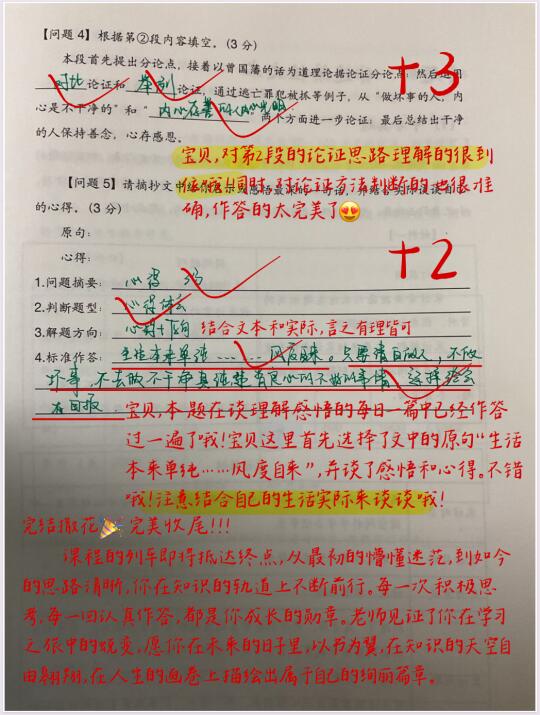 【问题4】根据第②段内容填空。(3分)
本段首先提出分论点,接着以曾国藩的话为道理论据论证分论点;然后运用
对比论证和 举例 论证,通过逃亡罪犯被抓等例子,从“做坏事的人,内
心是不干净的”和“ 内心存善的人心光明 ”两个方面进一步论证;最后总结出干净
的人保持善念,心存感恩。
+3
宝贝,对第2段的论证思路理解的很到
位呢!同时,对论证方法判断的也很准
确,作答的太完美了😍
【问题5】请摘抄文中
的心得。(3分)
原句:
心得:
+2
1.问题摘要: 心得
2.判断题型: 心得体会
3.解题方向: 结合文本和实际,言之有理皆可
4.标准作答: 生活本来单纯……风度自来。只要清白做人,不做
坏事,不去做不干净
有回报
宝贝,本题在谈理解感悟的每日一篇中已经作答
过一遍了哦!宝贝这里首先选择了文中的原句“生活
本来单纯……风度自来”,并谈了感悟和心得。不错
哦!注意结合自己的生活实际来谈谈哦!
完结撒花🎉完美收尾!!!
课程的列车即将抵达终点,从最初的懵懂迷茫,到如今
的思路清晰,你在知识的轨道上不断前行。每一次积极思
考,每一回认真作答,都是你成长的勋章。老师见证了你在学习
之旅中的蜕变,愿你在未来的日子里,以书为翼,在知识的天空自
由翱翔,在人生的画卷上描绘出属于自己的绚丽篇章。